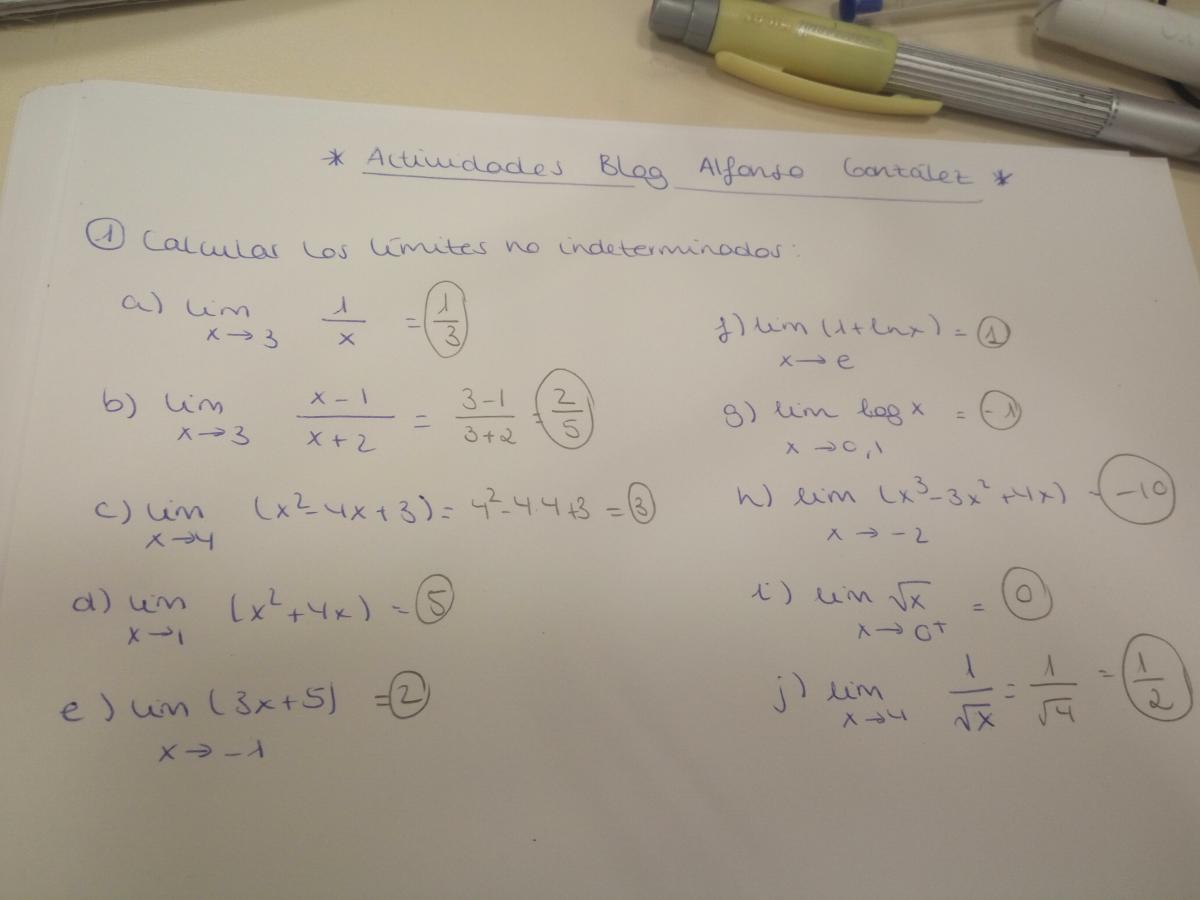 * Actividades Blog Alfonso González *
① Calcular los límites no indeterminados:
a) lim x→3 1/x = 1/3
b) lim x→3 (x-1)/(x+2) = (3-1)/(3+2) = 2/5
c) lim x→4 (x²-4x+3) = 4²-4·4+3 = 3
d) lim x→1 (x²+4x) = 5
e) lim x→-1 (3x+5) = 2
f) lim x→e (1+lnx) = 1
g) lim x→0,1 log x = -1
h) lim x→-2 (x³-3x²+4x) = -10
i) lim x→0⁺ √x = 0
j) lim x→4 1/√x = 1/√4 = 1/2